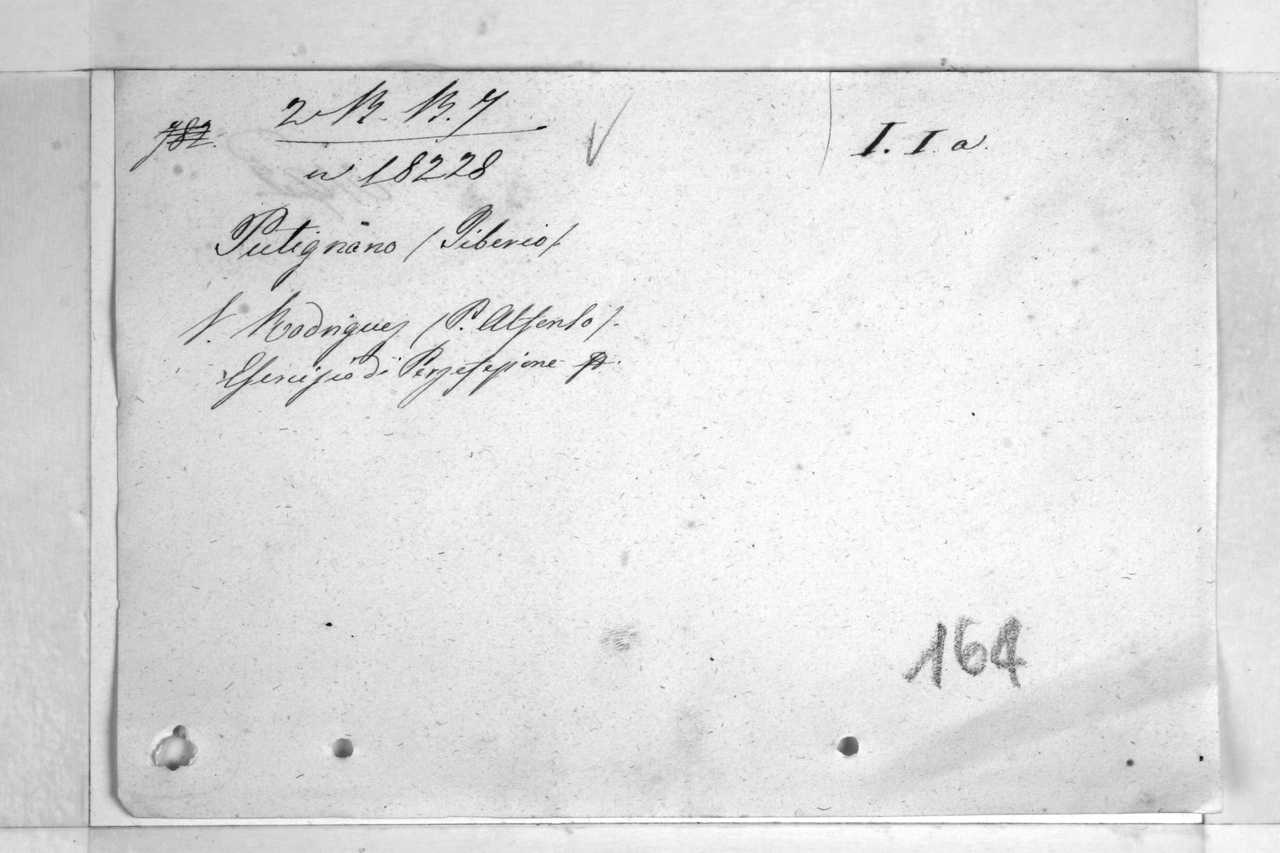 782.
2 N. N. 7
I. I. a.
n 18228
Putignano (Tiberio)
V. Rodriguez (P. Alfonso).
Esercizio di Perfezione p.
164